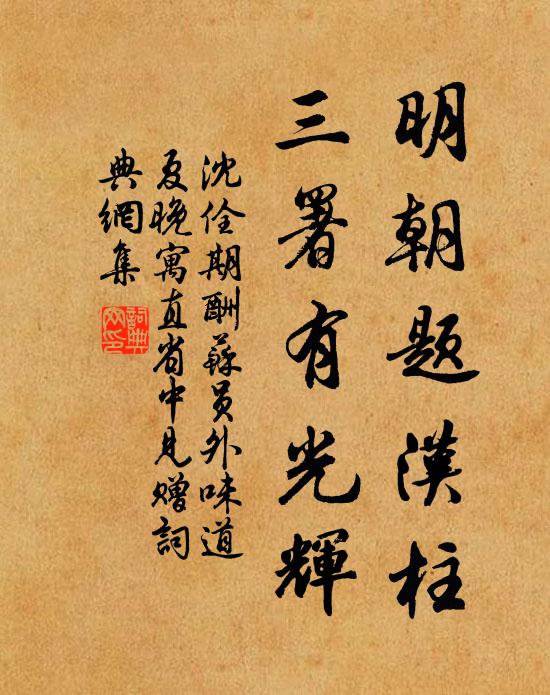 明朝題漢柱
三署有光輝
沈佺期酬蘇員外味道
夏晚寓直省中見贈詞
典網集
詞典網印